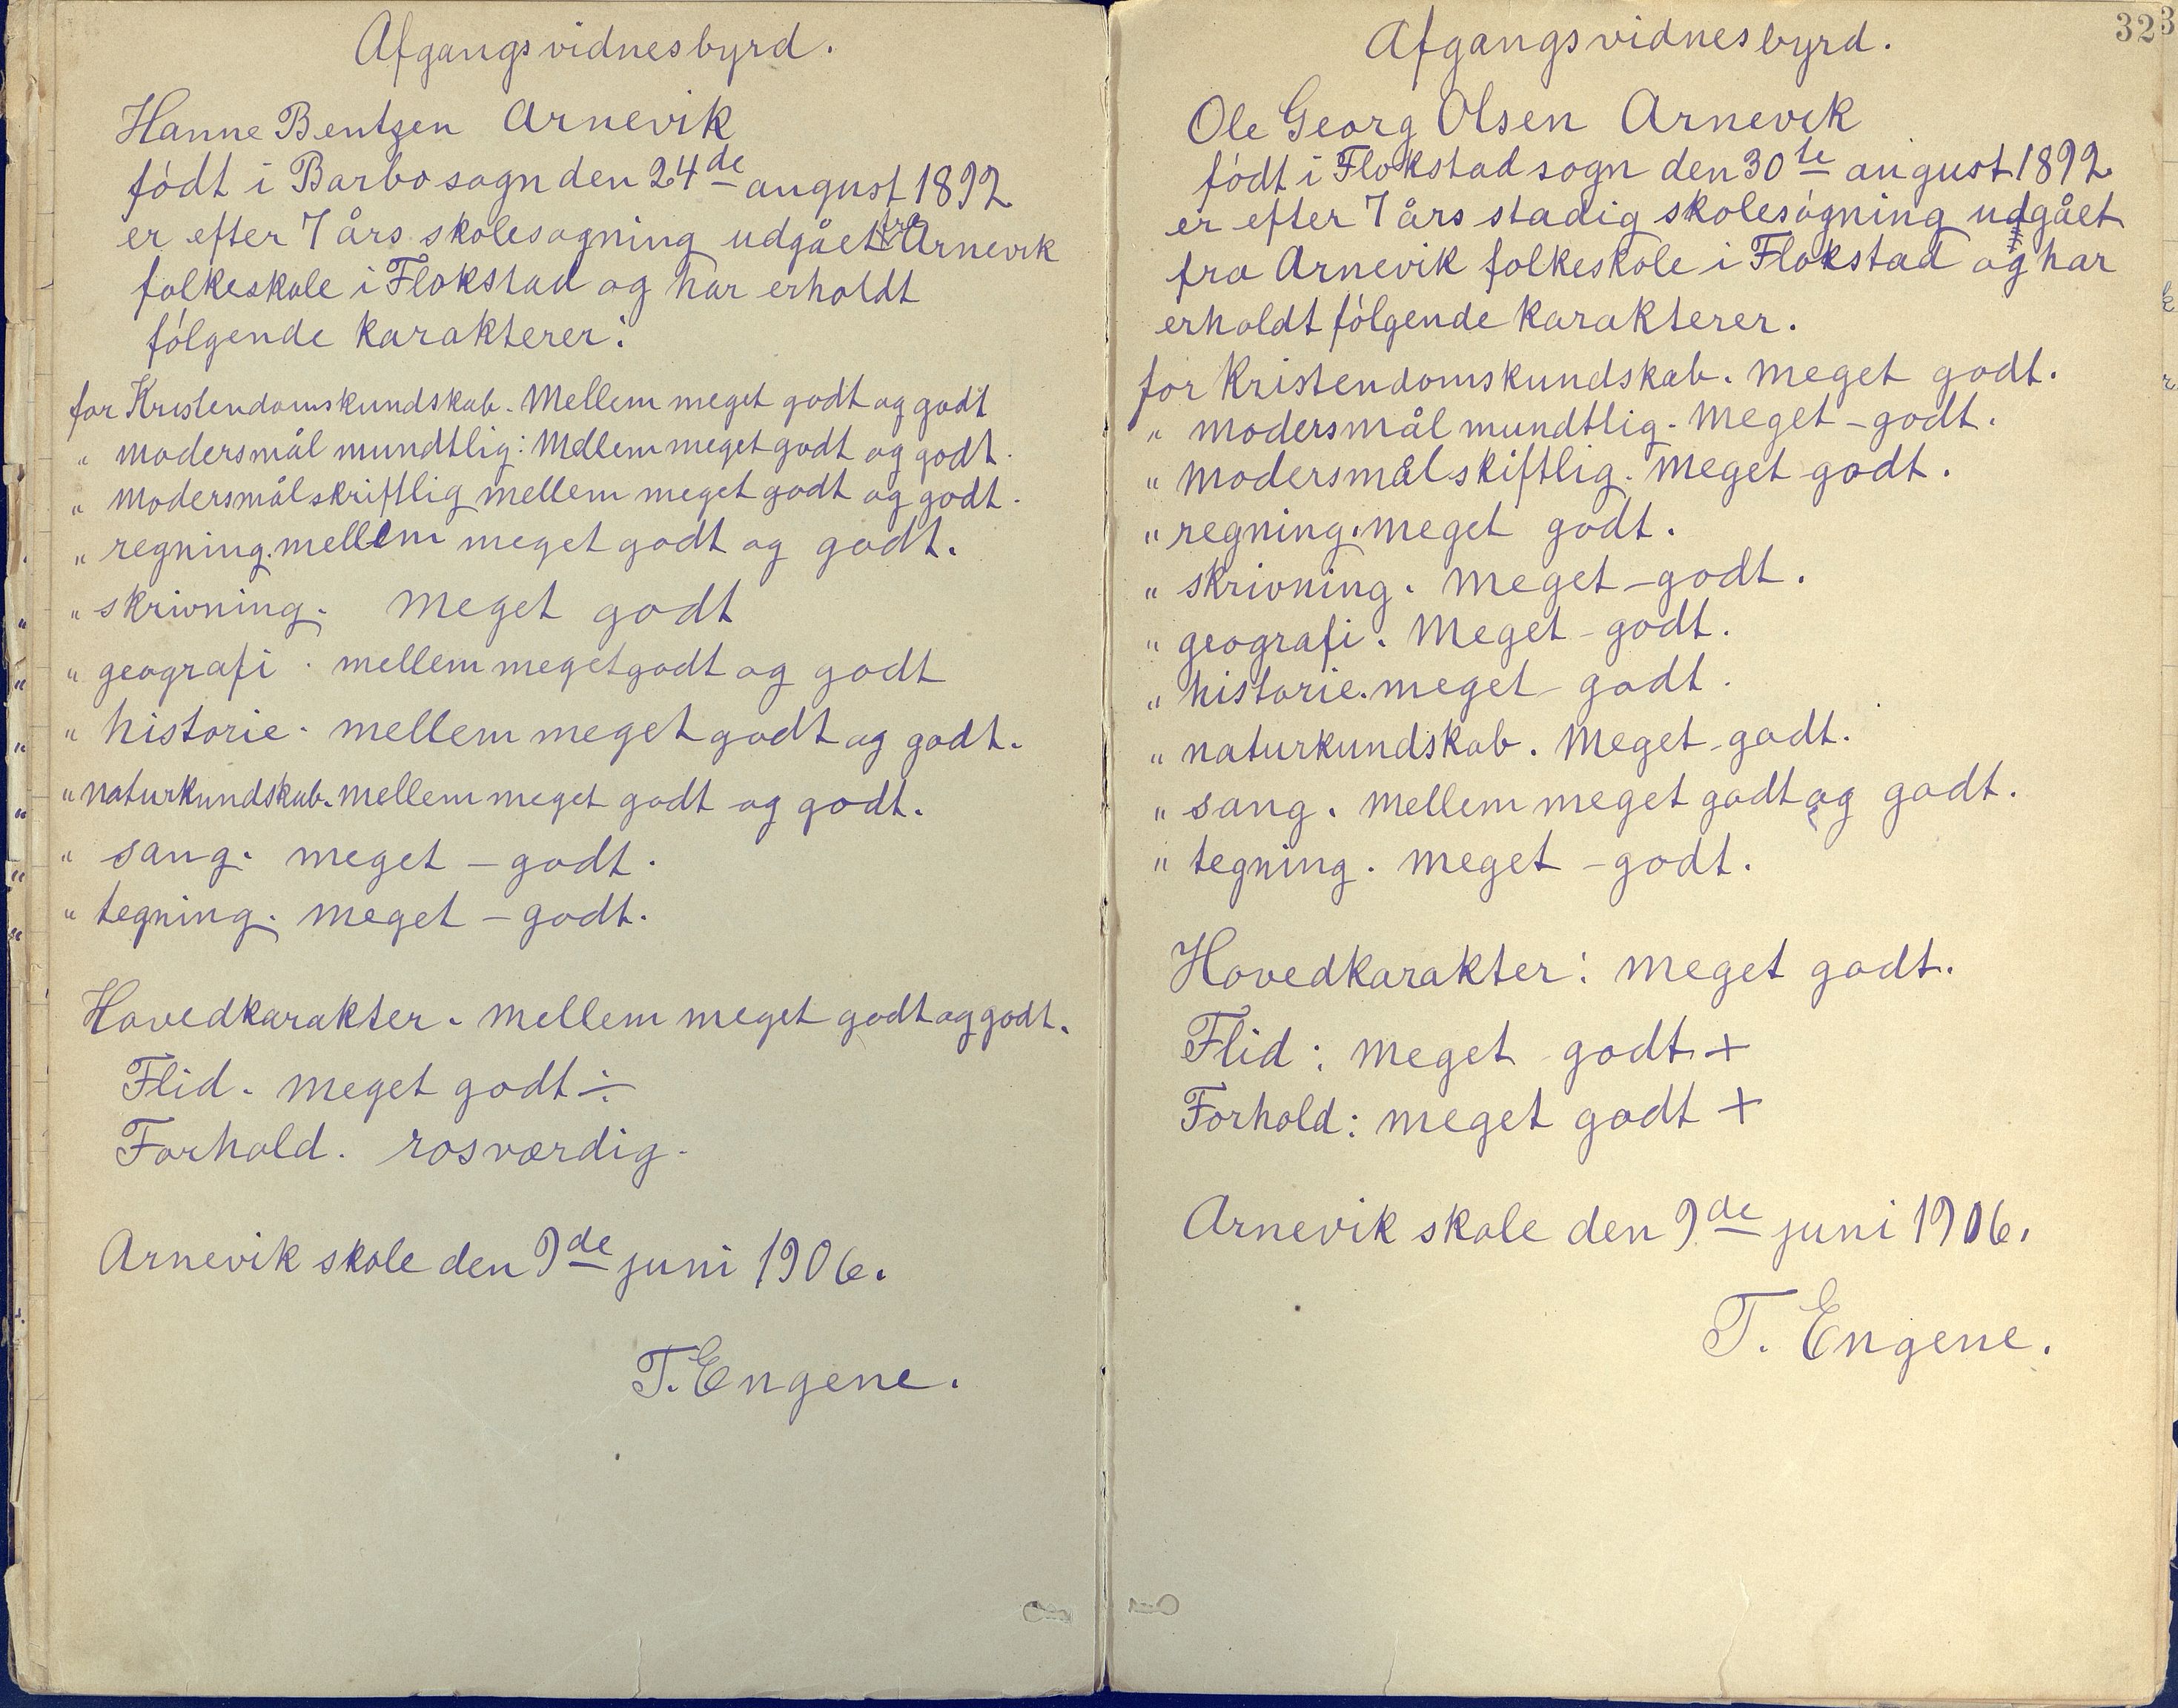 Afgangsvidnesbyrd.
Hanne Bentzen Arnevik
födt i Barbo sogn den 24de august 1892
er efter 7 års skolesøgning udgået fra Arnevik
folkeskole i Flokstad og har erholdt
fölgende karakterer:
for Kristendomskundskab. Mellem meget godt og godt
" modersmål mundtlig: Mellem meget godt og godt.
" Modersmål skriftlig mellem meget godt og godt.
" regning. mellem meget godt og godt.
" skrivning. Meget godt
" geografi. mellem meget godt og godt
" historie. mellem meget godt og godt.
" naturkundskab. mellem meget godt og godt.
" sang. meget – godt.
" tegning. meget – godt.
Hovedkarakter. mellem meget godt og godt.
Flid. meget godt ÷
Forhold. rosværdig.
Arnevik skole den 9de juni 1906.
T. Engene.
323
Afgangsvidnesbyrd.
Ole Georg Olsen Arnevik
födt i Flokstad sogn den 30te august 1892.
er efter 7 års stadig skolesögning udgået
fra Arnevik folkeskole i Flokstad og har
erholdt fölgende karakterer.
for Kristendomskundskab. meget godt.
" modersmål mundtlig. Meget – godt.
" modersmål skiftlig. Meget godt.
" regning. meget godt.
" skrivning. meget – godt.
" geografi. Meget – godt.
" historie. meget – godt.
" naturkundskab. Meget – godt.
" sang. mellem meget godt og godt.
" tegning. meget – godt.
Hovedkarakter: meget godt.
Flid: meget godt +
Forhold: meget godt +
Arnevik skole den 9de juni 1906.
T. Engene.